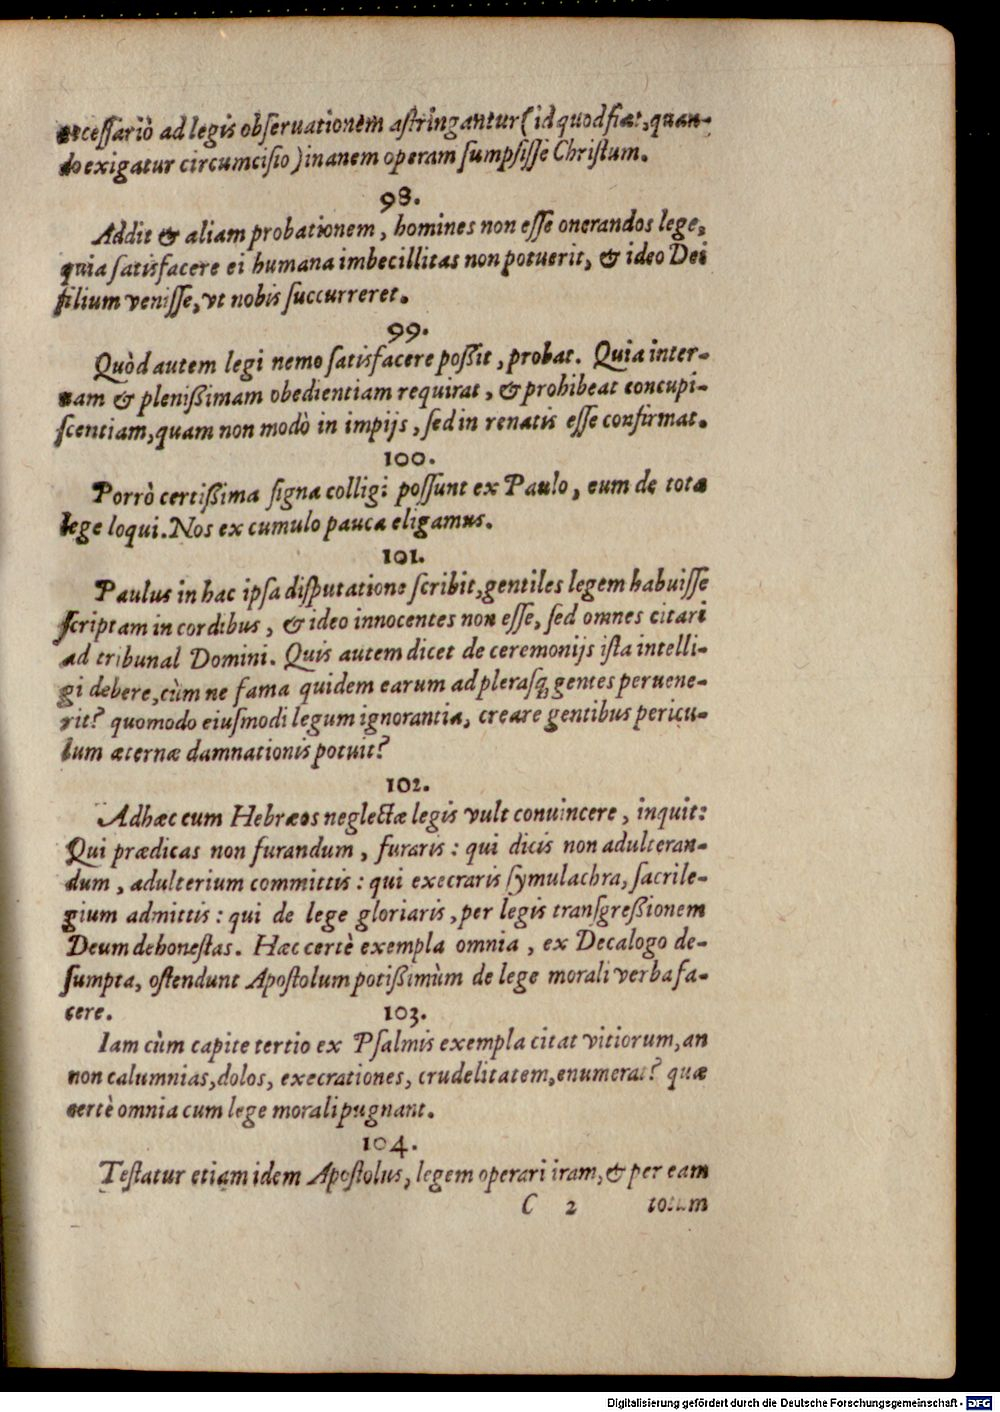 necessariò ad legis obseruationem astringantur (id quod fiat, quan-
do exigatur circumcisio) inanem operam sumpsisse Christum.
98.
Addit & aliam probationem, homines non esse onerandos lege,
quia satisfacere ei humana imbecillitas non potuerit, & ideo Dei
filium venisse, vt nobis succurreret.
99.
Quòd autem legi nemo satisfacere poßit, probat. Quia inter-
nam & plenißimam obedientiam requirat, & prohibeat concupi-
scentiam, quam non modò in impijs, sed in renatis esse confirmat.
100.
Porrò certißima signa colligi possunt ex Paulo, eum de tota
lege loqui. Nos ex cumulo pauca eligamus.
101.
Paulus in hac ipsa disputatione scribit, gentiles legem habuisse
scriptam in cordibus, & ideo innocentes non esse, sed omnes citari
ad tribunal Domini. Quis autem dicet de ceremonijs ista intelli-
gi debere, cùm ne fama quidem earum ad plerasq; gentes peruene-
rit? quomodo eiusmodi legum ignorantia, creare gentibus pericu-
lum æternæ damnationis potuit?
102.
Adhæc cum Hebræos neglectæ legis vult conuincere, inquit:
Qui prædicas non furandum, furaris: qui dicis non adulteran-
dum, adulterium committis: qui execraris symulachra, sacrile-
gium admittis: qui de lege gloriaris, per legis transgreßionem
Deum dehonestas. Hæc certè exempla omnia, ex Decalogo de-
sumpta, ostendunt Apostolum potißimùm de lege morali verba fa-
cere.
103.
Iam cùm capite tertio ex Psalmis exempla citat vitiorum, an
non calumnias, dolos, execrationes, crudelitatem, enumerat? quæ
certè omnia cum lege morali pugnant.
104.
Testatur etiam idem Apostolus, legem operari iram, & per eam
C 2 totum
Digitalisierung gefördert durch die Deutsche Forschungsgemeinschaft - DFG